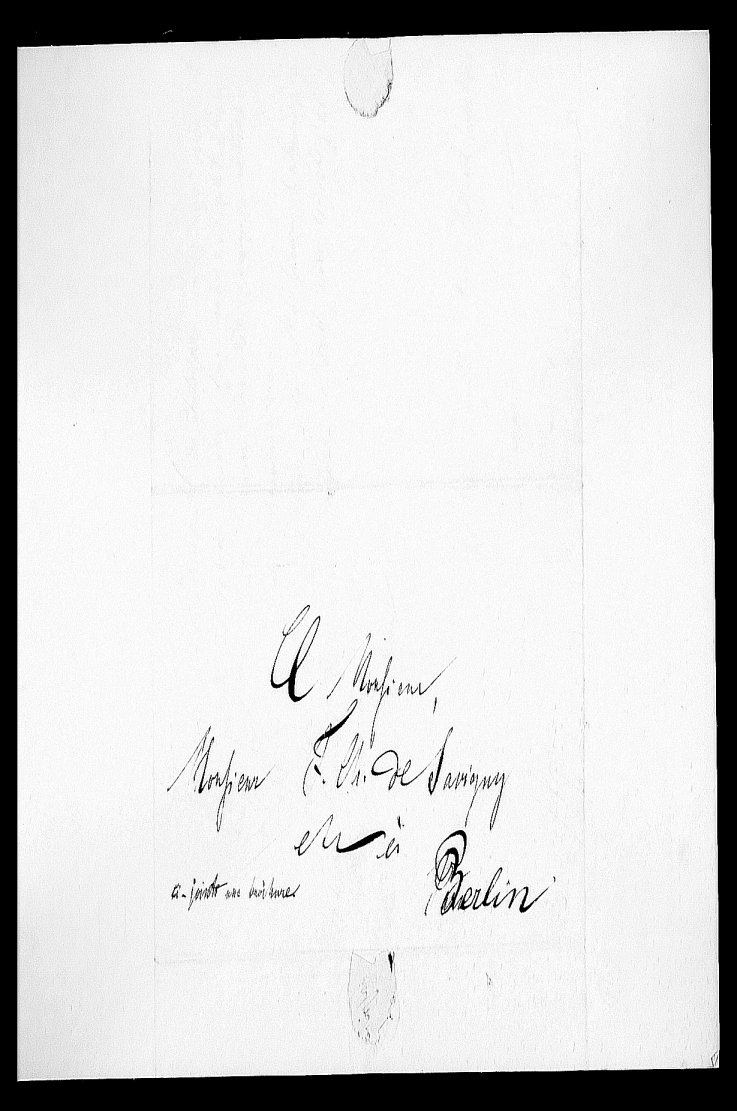 A Monsieur,
Monsieur F. Ch. de Savigny
etc à
Berlin
ci-jointe une brochure